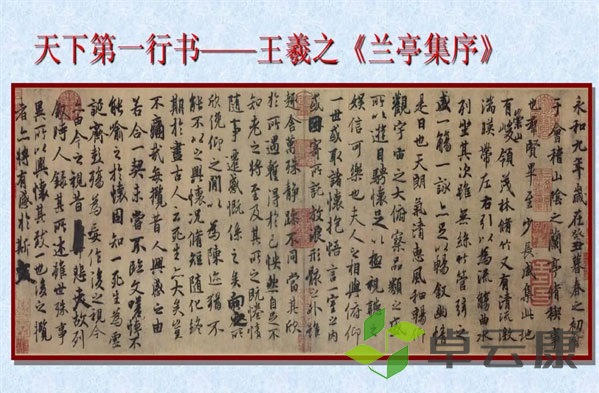 天下第一行书——王羲之《兰亭集序》
永和九年歲在癸丑暮春之初會
于會稽山陰之蘭亭脩稧事
也羣賢畢至少長咸集此地
有崇山峻領茂林脩竹又有清流激
湍暎帶左右引以為流觴曲水
列坐其次雖無絲竹管弦之
盛一觴一詠亦足以暢敘幽情
是日也天朗氣清惠風和暢仰
觀宇宙之大俯察品類之盛
所以遊目騁懷足以極視聽之
娛信可樂也夫人之相與俯仰
一世或取諸懷抱悟言一室之內
或因寄所託放浪形骸之外雖
趣舍萬殊靜躁不同當其欣
於所遇蹔得於己怏然自足不
知老之將至及其所之既惓情
隨事遷感慨係之矣向之所
欣俛仰之閒以為陳迹猶不
能不以之興懷況脩短隨化終
期於盡古人云死生亦大矣豈
不痛哉每攬昔人興感之由
若合一契未嘗不臨文嗟悼不
能喻之於懷固知一死生為虛
誕齊彭殤為妄作後之視今
亦由今之視昔悲夫故列
敘時人錄其所述雖世殊事
異所以興懷其致一也後之攬
者亦將有感於斯文
卓云康